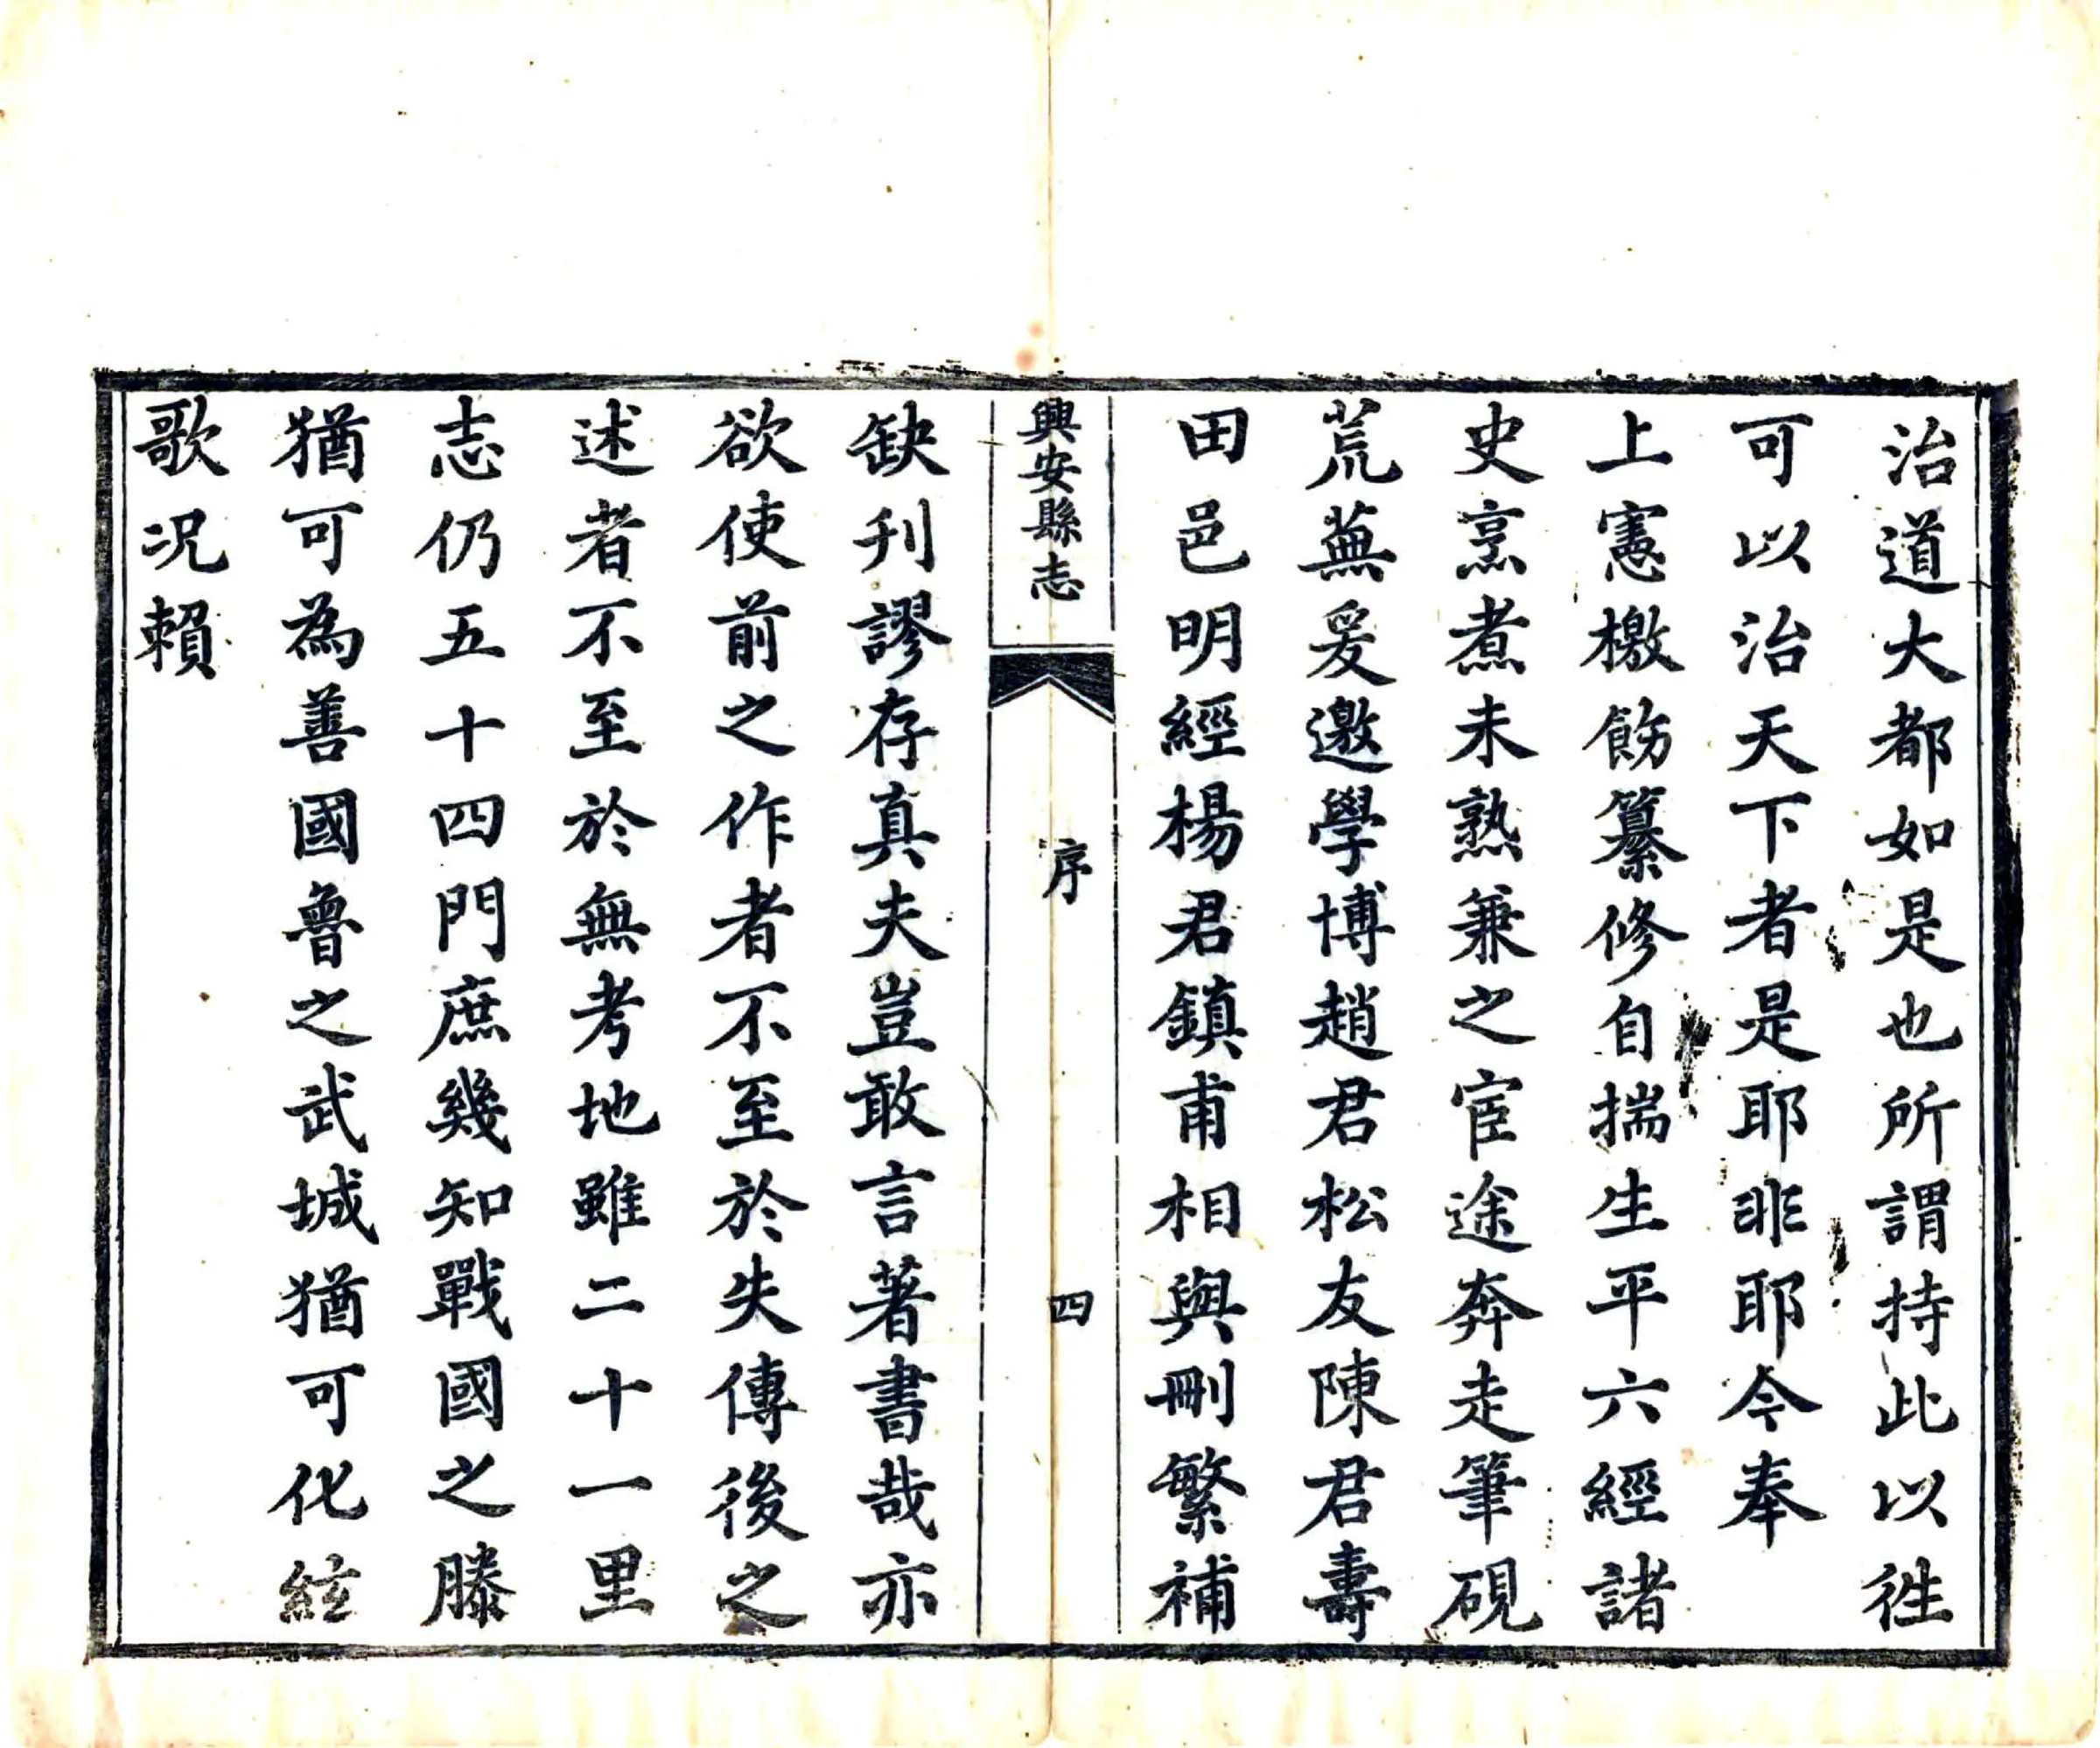 治道大都如是也所謂持此以徃
可以治天下者是耶非耶今奉
上憲檄飭纂修自揣生平六經諸
史烹煮未熟兼之宦途奔走筆硯
荒蕪爰邀學博趙君松友陳君壽
田邑明經楊君鎮甫相與刪繁補
興安縣志
序
四
缺刋謬存真夫豈敢言著書哉亦
欲使前之作者不至於失傳後之
述者不至於無考地雖二十一里
志仍五十四門庶幾知戰國之滕
猶可為善國魯之武城猶可化絃
歌况賴